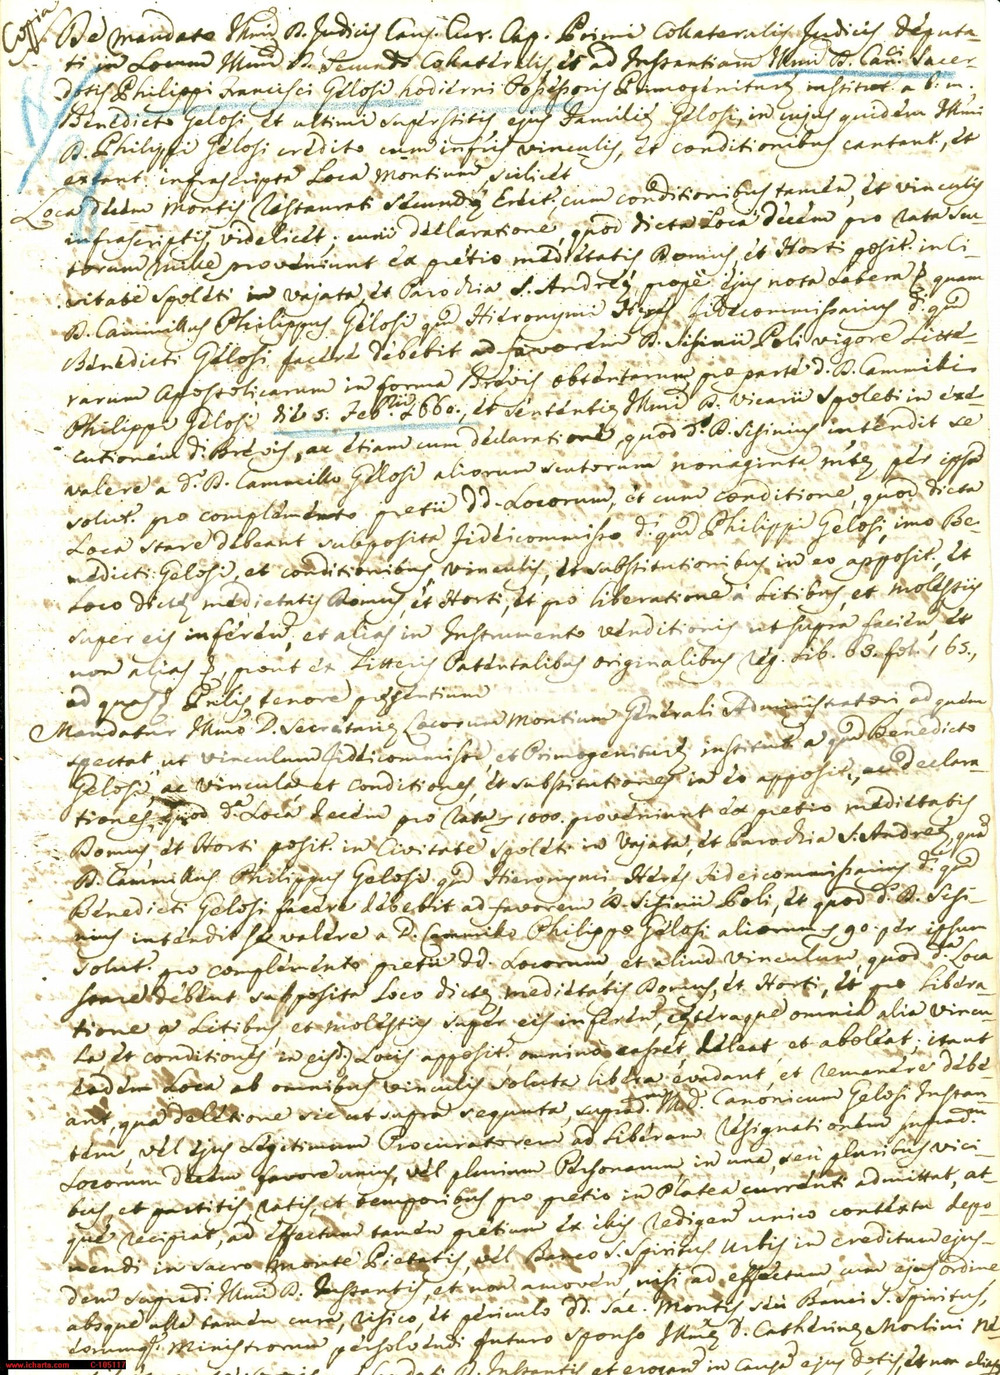 Coppia
De mandato Illmi D. Judicis Caus. Cur. Cap. Primi Collateralis Judicis deputa-
ti in Locum Illmi D. Secundi Collateralis et ad Instantiam Illmi D. Can.ci Sacer
dotis Philippi Francisci Gelosi hodierni Possessoris Primogeniturę institut. a b: m:
Benedicto Gelosi et ultimi superstitis ejus Familię Gelosi, in cujus quidem Illmi
D. Philippi Gelosi credito cum infris vinculis, et conditionibus cantant, et
extant infrascripta Loca Montium, scilicet
Loca decem Montis Restaurati secundę Erect. cum conditionibus tamen, et vinculis
infrascriptis, videlicet, cum declaratione, quod dicta Loca decem pro rata scu-
torum mille proveniunt ex pretio medietatis Domus, et Horti posit. in Ci-
vitate Spoleti in Vajata, et Parochia S. Andreę, prope ejus nota latera quam
D. Cammillus Philippus Gelosi qm Hieronymi Heres fideicommissarius d. qm
Benedicti Gelosi facere debebit ad favorem D. Sisinii Poli vigore Litte-
rarum Apostolicarum in forma Brevis obtentarum pro parte d. D. Cammilli
Philippi Gelosi die 5. Feb.rii 1660., et sententię Illmi D. Vicarii Spoleti in exe-
cutionem d. Brevis, ac etiam cum declaratione, quod d. D. Sisinius intendit se
valere a d. D. Cammillo Gelosi aliorum scutorum nonaginta per ipsum
solut. pro complemento pretii dd. Locorum, et cum conditione, quod dicta
Loca stare debeant subposita fideicommisso d. qm Philippi Gelosi, imo Be-
nedicti Gelosi, et conditionibus, vinculis, et substitutionibus in eo apposit. et
Loco dictę medietatis Domus, et Horti, et pro liberatione a Litibus, et molestiis
super eis inferen, et alias in Instrumento venditionis ut supra facien, et
non alias prout ex Litteris Patentalibus originalibus reg. Lib. 63. fol. 165.,
ad quas tenore presentium
Mandatur Illmo D. Secretario Locorum Montium Generali Administratori, ad quem
spectat ut vinculum fideicommissi, et Primogeniturę institut. a qm Benedicto
Gelosi, ac vincula et conditiones, et substitutiones in eo apposit., ac declara-
tiones, quod d. Loca decem pro rata 1000. proveniunt ex pretio medietatis
Domus, et Horti posit. in Civitate Spoleti in Vajata, et Parochia S. Andreę, quam
D. Cammillus Philippus Gelosi qm Hieronymi Heres fideicommissarius d. qm
Benedicti Gelosi facere debebit ad favorem D. Sisinii Poli, et quod d. D. Sisi-
nius intendit se valere a D. Cammillo Philippo Gelosi aliorum 90. per ipsum
solut. pro complemento pretii dd. Locorum, et aliud vinculum, quod d. Loca
stare debent subposita Loco dictę medietatis Domus, et Horti, et pro libera-
tione a Litibus, et molestiis super eis inferen, ceteraque omnia alia vincu-
la et conditiones in eisd. Locis apposit. omnino casset deleat, et aboleat, itaut
eadem Loca ab omnibus vinculis soluta libera evadant, et remanere debe-
ant, qua deletione sic ut supra sequuta, suprad. Illm D. Canonicum Gelosi Instan-
tem, vel ejus Legitimum Procuratorem ad Liberam resignationem suprad.
Locorum decem favore unius, vel plurium Personarum in una, seu pluribus vici-
bus, et partitis, ratis, et temporibus pro pretio in Platea currenti admittat, at-
que recipiat, ad effectum tamen pretium ex illis redigen unico contextu depo-
nendi in Sacro Monte Pietatis, vel Banco S. Spiritus Urbis in creditum ejus-
dem suprad. Illmi D. Instantis, et non amoven, nisi ad effectum, cum ejus ordine
absque ulla tamen cura, risico, et periculo dd. Sac. Montis seu Banci S. Spiritus,
eorumq. Ministrorum persolvendi futuro sponso Illmę D. Catherinę Martini Ne-
D. Instantis et erogan in causa ejus dotis, et non alias
www.icharta.com C-105117